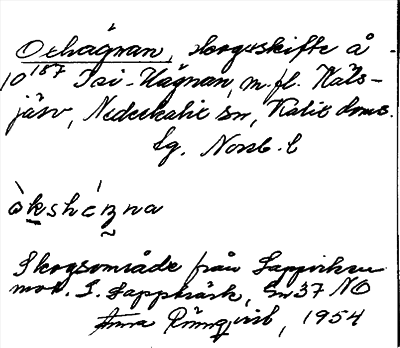 Oxhägnan, skogsskifte å
10 187 Isi-Hägnan, m.fl. Räts-
järv, Nederkalix sn, Kalix doms.
lg. Norrb. l
òkshägna
Skogsområde från Lappirksu
mot. S. Lappträsk, Sn 37 NO
Anna Rönnqvist, 1954